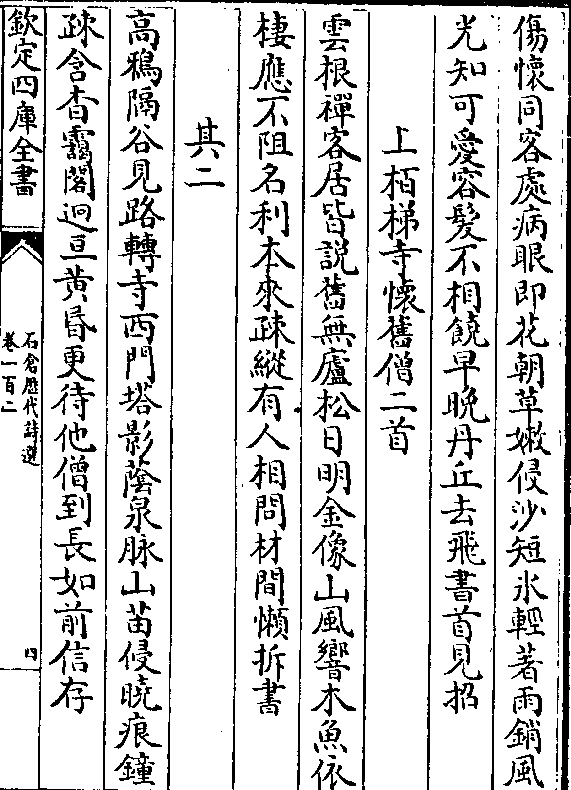 傷懷同客處病眼即花朝草嫩侵沙短氷輕著雨銷風
光知可愛容髮不相饒早晚丹丘去飛書首見招
上栢梯寺懷舊僧二首
雲根禪客居皆說舊無廬松日明金像山風響木魚依
棲應不阻名利本來疎縱有人相問林間懶拆書
其二
高鴉隔谷見路轉寺西門塔影蔭泉脉山苗侵曉痕鐘
疎含杳靄閣迥亘黃昏更待他僧到長如前信存
欽定四庫全書
石倉歷代詩選
卷一百二
四